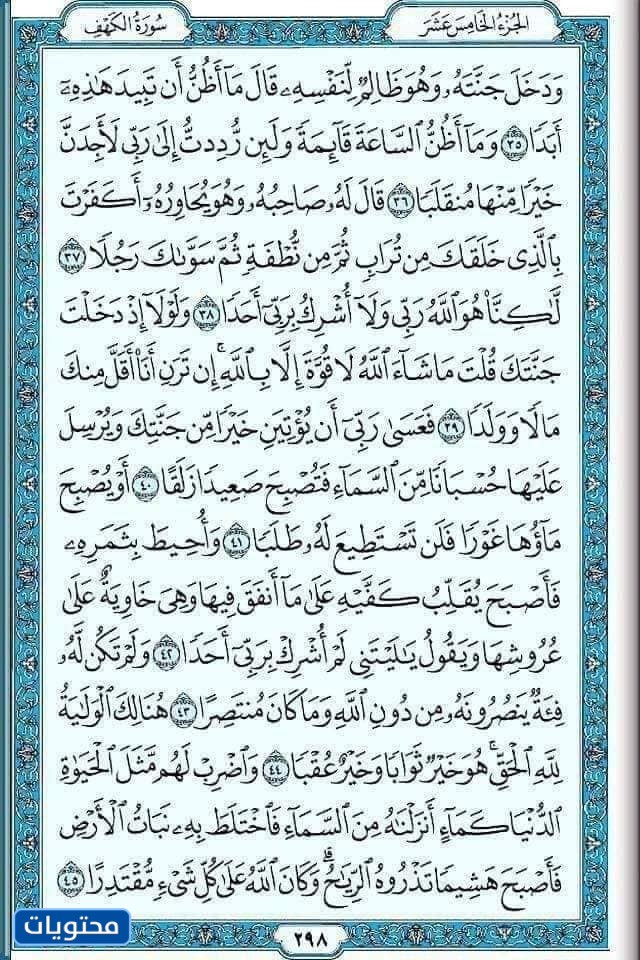 الجُزْءُ الخَامِسَ عَشَرَ
سُورَةُ الكَهْفِ
وَدَخَلَ جَنَّتَهُۥ وَهُوَ ظَالِمٌ لِّنَفْسِهِۦ قَالَ مَآ أَظُنُّ أَن تَبِيدَ هَٰذِهِۦٓ
أَبَدًا ٣٥ وَمَآ أَظُنُّ ٱلسَّاعَةَ قَآئِمَةً وَلَئِن رُّدِدتُّ إِلَىٰ رَبِّى لَأَجِدَنَّ
خَيْرًا مِّنْهَا مُنقَلَبًا ٣٦ قَالَ لَهُۥ صَاحِبُهُۥ وَهُوَ يُحَاوِرُهُۥٓ أَكَفَرْتَ
بِٱلَّذِى خَلَقَكَ مِن تُرَابٍ ثُمَّ مِن نُّطْفَةٍ ثُمَّ سَوَّىٰكَ رَجُلًا ٣٧
لَّٰكِنَّا۠ هُوَ ٱللَّهُ رَبِّى وَلَآ أُشْرِكُ بِرَبِّىٓ أَحَدًا ٣٨ وَلَوْلَآ إِذْ دَخَلْتَ
جَنَّتَكَ قُلْتَ مَا شَآءَ ٱللَّهُ لَا قُوَّةَ إِلَّا بِٱللَّهِ ۚ إِن تَرَنِ أَنَا۠ أَقَلَّ مِنكَ
مَالًا وَوَلَدًا ٣٩ فَعَسَىٰ رَبِّىٓ أَن يُؤْتِيَنِ خَيْرًا مِّن جَنَّتِكَ وَيُرْسِلَ
عَلَيْهَا حُسْبَانًا مِّنَ ٱلسَّمَآءِ فَتُصْبِحَ صَعِيدًا زَلَقًا ٤٠ أَوْ يُصْبِحَ
مَآؤُهَا غَوْرًا فَلَن تَسْتَطِيعَ لَهُۥ طَلَبًا ٤١ وَأُحِيطَ بِثَمَرِهِۦ
فَأَصْبَحَ يُقَلِّبُ كَفَّيْهِ عَلَىٰ مَآ أَنفَقَ فِيهَا وَهِىَ خَاوِيَةٌ عَلَىٰ
عُرُوشِهَا وَيَقُولُ يَٰلَيْتَنِى لَمْ أُشْرِكْ بِرَبِّىٓ أَحَدًا ٤٢ وَلَمْ تَكُن لَّهُۥ
فِئَةٌ يَنصُرُونَهُۥ مِن دُونِ ٱللَّهِ وَمَا كَانَ مُنتَصِرًا ٤٣ هُنَالِكَ ٱلْوَلَٰيَةُ
لِلَّهِ ٱلْحَقِّ ۚ هُوَ خَيْرٌ ثَوَابًا وَخَيْرٌ عُقْبًا ٤٤ وَٱضْرِبْ لَهُم مَّثَلَ ٱلْحَيَوٰةِ
ٱلدُّنْيَا كَمَآءٍ أَنزَلْنَٰهُ مِنَ ٱلسَّمَآءِ فَٱخْتَلَطَ بِهِۦ نَبَاتُ ٱلْأَرْضِ
فَأَصْبَحَ هَشِيمًا تَذْرُوهُ ٱلرِّيَٰحُ ۗ وَكَانَ ٱللَّهُ عَلَىٰ كُلِّ شَىْءٍ مُّقْتَدِرًا ٤٥
محتويات
٢٩٨